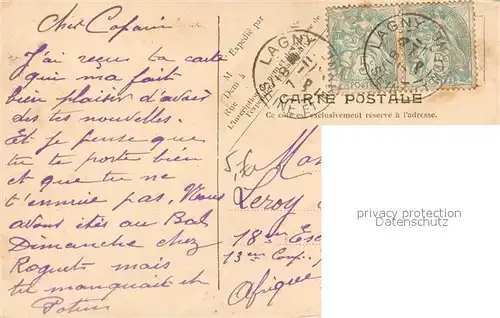 cher Copain
J'ai reçu ta carte
qui m'a fait
bien plaisir d'avoir
des tes nouvelles.
Et je pense que
tu te porte bien
et que tu ne
t'ennuie pas. Nous
avons étés au Bal
Dimanche chez
Roquets mais
tu manquait et
M. Expédié par
Dem à
Rue
LAGNY
LAGNY
CARTE POSTALE
Ce côté est exclusivement réservé à l'adresse.
Leroy
18em
13em Comp.
Afrique
privacy protection
Datenschutz